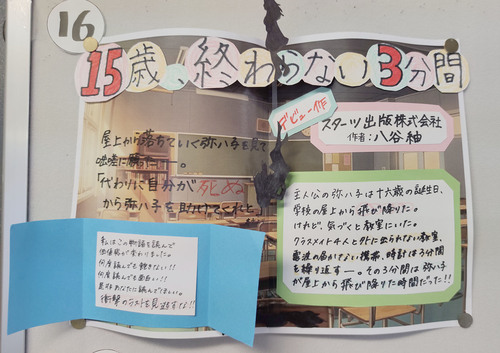 16
15歳、終わらない3分間
デビュー作
スターツ出版株式会社
作者:八谷紬
屋上から落ちていく弥八子を見て
咄嗟に願った―。
「代わりに自分が死ぬ
から弥八子を助けてくれと」
主人公の弥八子は十六歳の誕生日、
学校の屋上から飛び降りた。
けれど、気づくと教室にいた。
クラスメイト4人と外に出られない教室、
電波の届かない携帯、時計は3分間
を繰り返す―。その3分間は弥八子
が屋上から飛び降りた時間だった!!
私はこの物語を読んで
価値観が変わりました。
何度読んでも飽きない!!
何度読んでも面白い!!
是非あなたに読んでほしい。
衝撃のラストを見逃すな!!